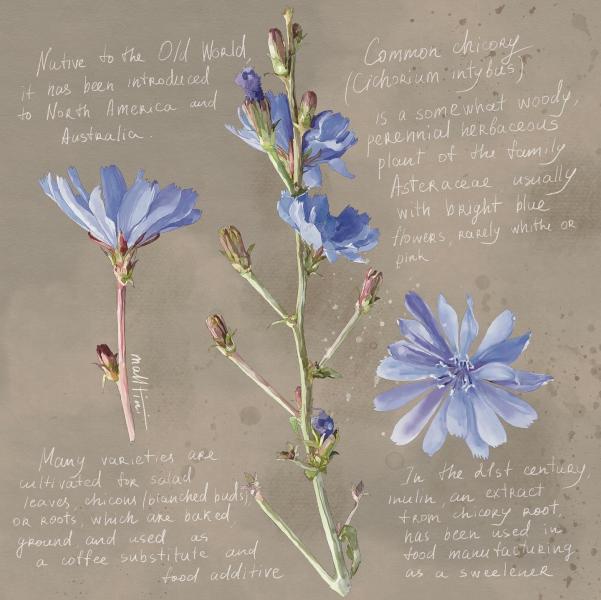 Native to the Old World
it has been introduced
to North America and
Australia.
Common chicory
(Cichorium intybus)
is a somewhat woody,
perennial herbaceous
plant of the family
Asteraceae usually
with bright blue
flowers, rarely whithe or
pink
malltin
Many varieties are
cultivated for salad
leaves, chicons (blanched buds),
or roots, which are baked,
ground and used as
a coffee substitute and
food additive
In the 21st century,
inulin, an extract
from chicory root,
has been used in
food manufacturing
as a sweetener